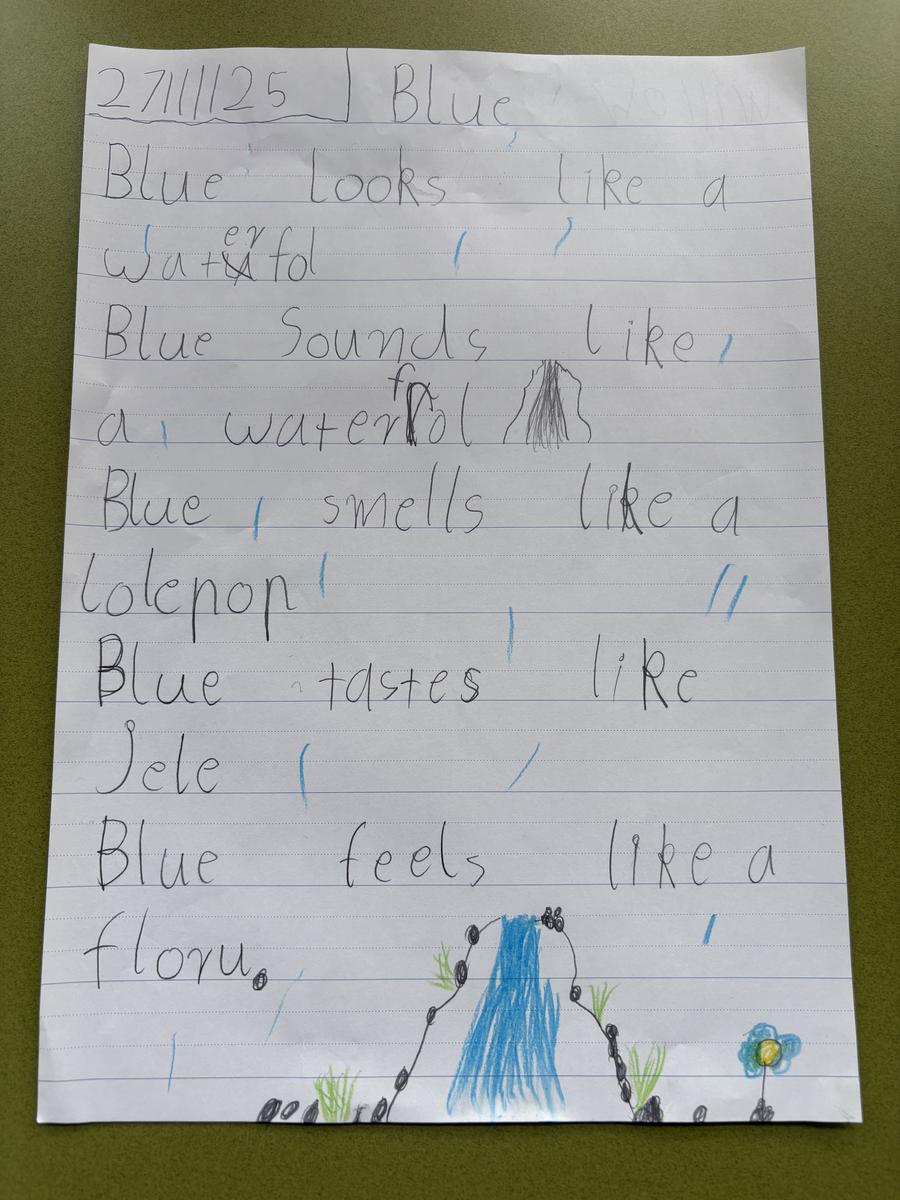 27/11/25 Blue
Blue looks like a
waterfol
Blue Sounds like
a waterfol
Blue smells like a
lolepop
Blue tastes like
Jele
Blue feels like a
floru.